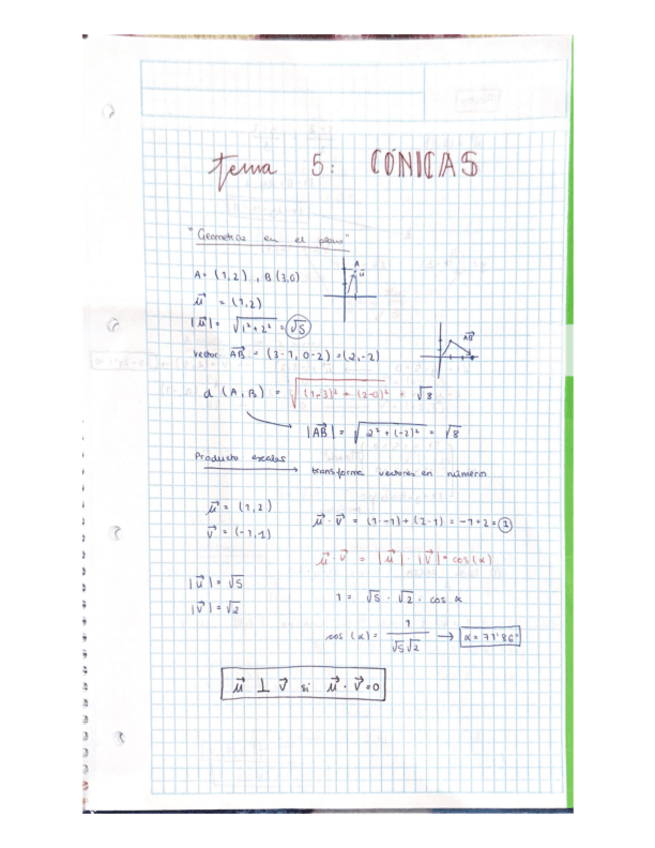 tema 5: CÓNICAS
"Geometría en el plano"
A = (1,2) , B (3,0)
A
u⃗
u⃗ = (1,2)
|u⃗| = √1²+2² = √5
AB⃗
vector AB⃗ = (3-1, 0-2) = (2,-2)
d (A, B) = √(1-3)² + (2-0)² = √8
|AB⃗| = √2² + (-2)² = √8
Producto escalar → transforma vectores en números
u⃗ = (1,2)
v⃗ = (-1,1)
u⃗ · v⃗ = (1·-1) + (2·1) = -1+2 = 1
u⃗ · v⃗ = |u⃗| · |v⃗| · cos(α)
|u⃗| = √5
|v⃗| = √2
1 = √5 · √2 · cos α
cos (α) = 1/√5√2 → α = 71'86°
u⃗ ⊥ v⃗ si u⃗ · v⃗ = 0